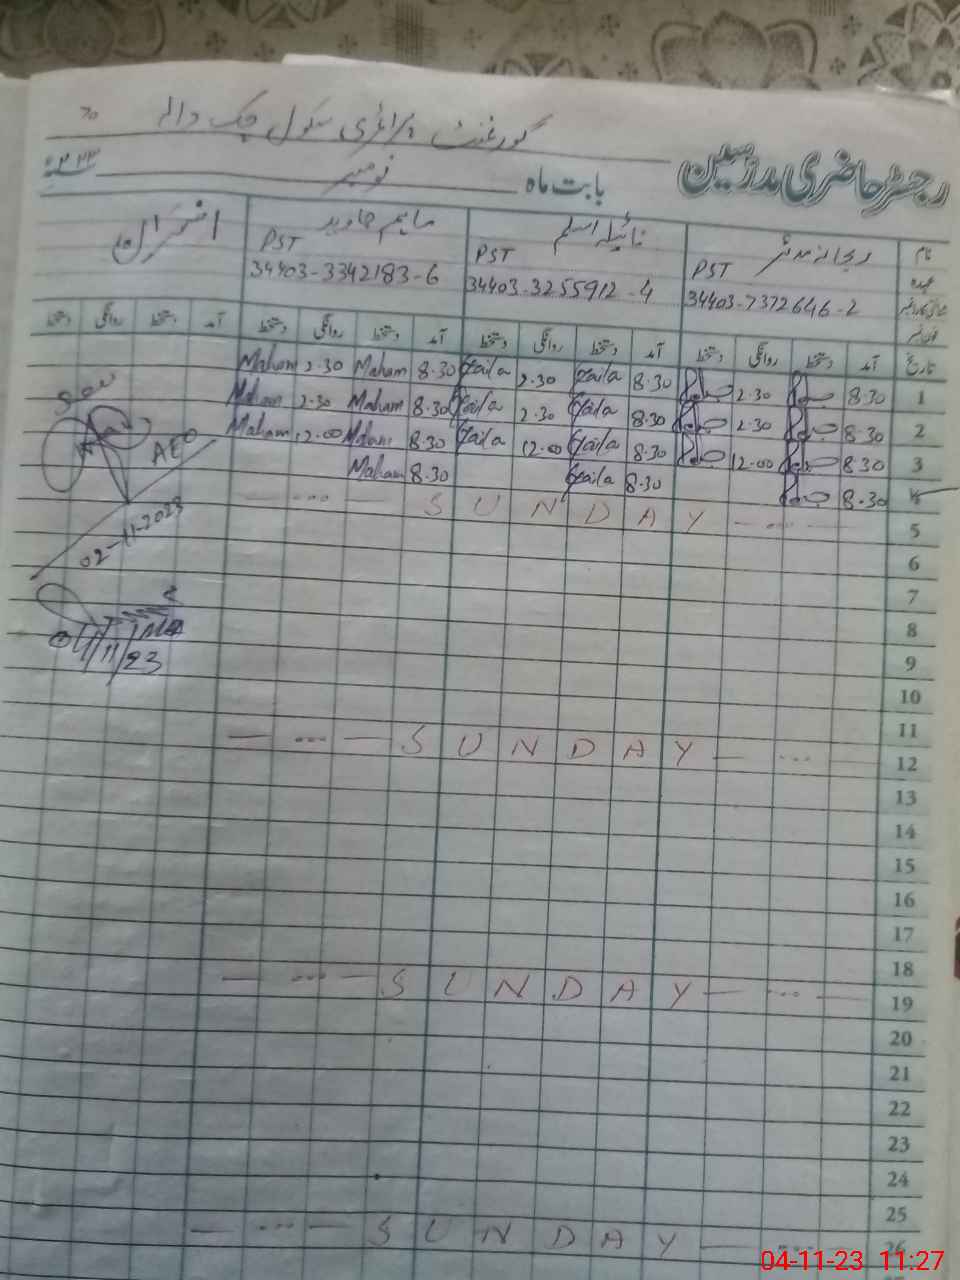 گورنمنٹ پرائمری سکول چک والہ
رجسٹر حاضری مدرسین بابت ماہ نومبر ۲۰۲۳
نام نائیلہ اسلم ماہم جاوید
عہدہ PST PST PST
34403-7372646-2 34403-3255912-4 34403-3342183-6
تاریخ آمد دستخط روانگی دستخط آمد دستخط روانگی دستخط آمد دستخط روانگی دستخط آمد دستخط روانگی دستخط
1 8.30 2.30 8.30 Naila 2.30 Naila 8.30 Maham 2.30 Maham
2 8.30 2.30 8.30 Naila 2.30 Naila 8.30 Maham 2.30 Maham
3 8.30 12.00 8.30 Naila 12.00 Naila 8.30 Maham 12.00 Maham
4 8.30 8.30 Naila 8.30 Maham
5 SUNDAY
AEO
02-11-2023
6
7
8
04/11/23
9
10
11
12 SUNDAY
13
14
15
16
17
18
19 SUNDAY
20
21
22
23
24
25
26 SUNDAY
04-11-23 11:27